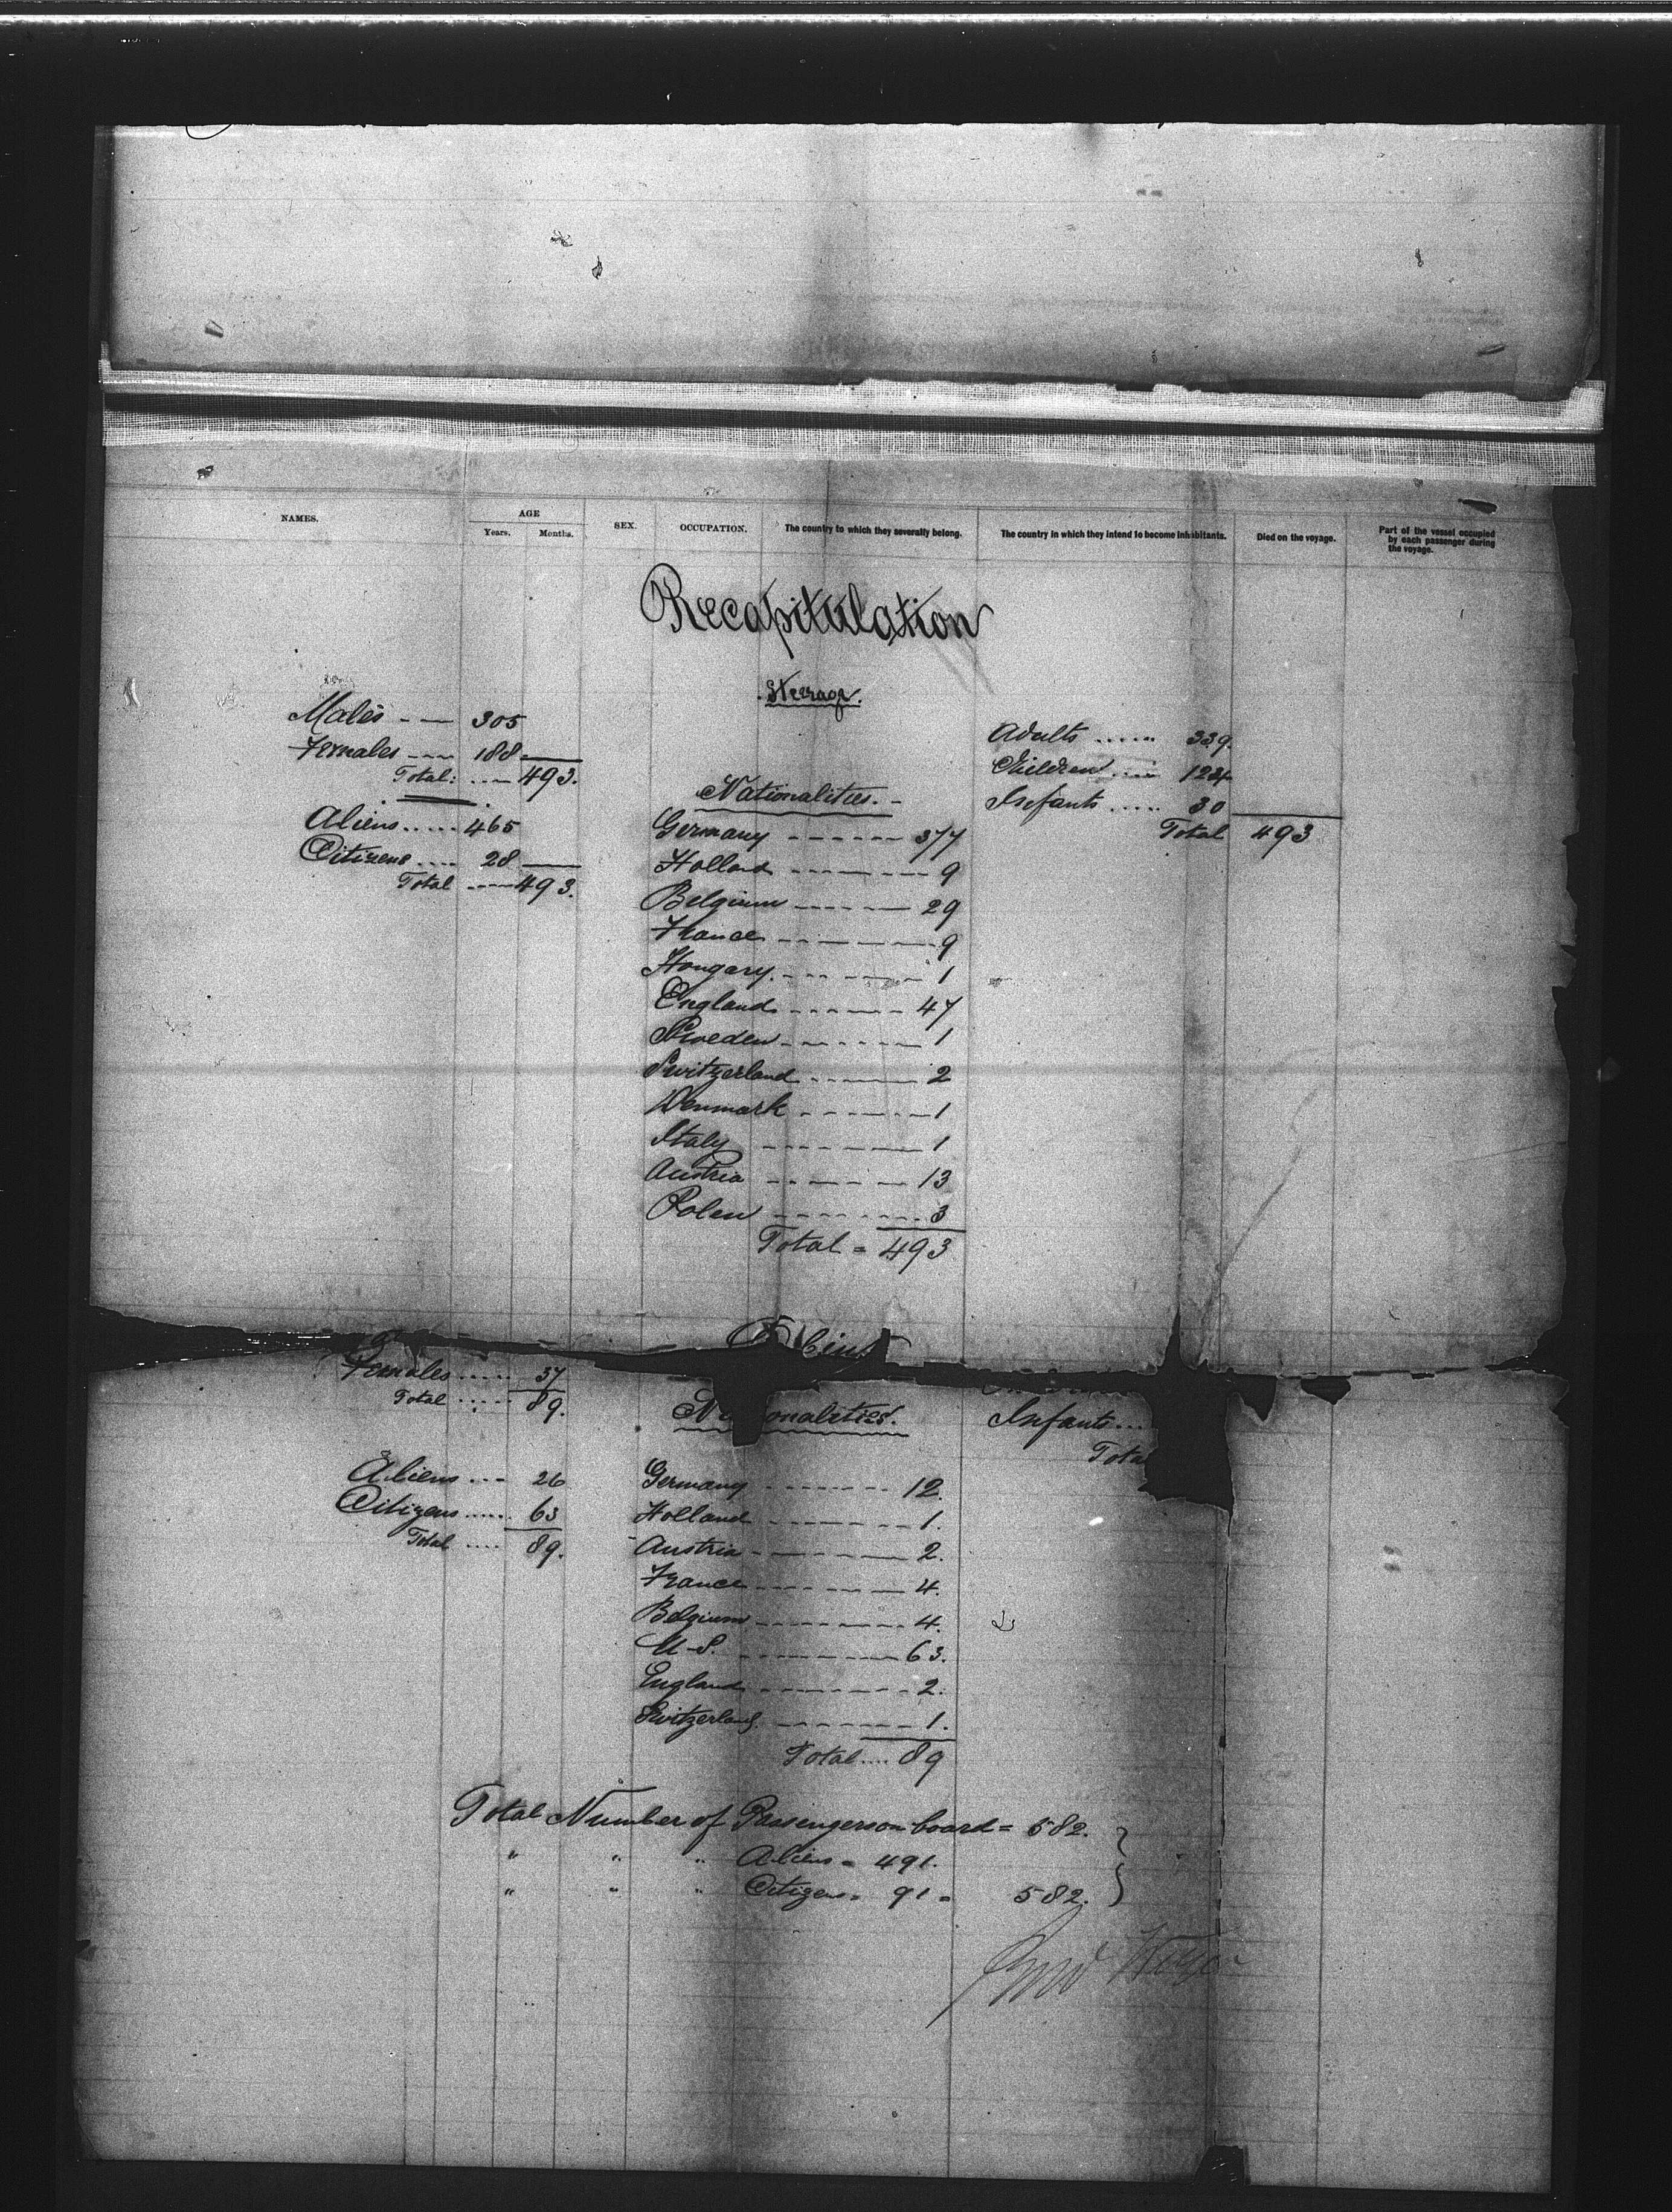 NAMES.
AGE
Years. Months.
SEX.
OCCUPATION.
The country to which they severally belong.
The country in which they intend to become inhabitants.
Died on the voyage.
Part of the vessel occupied
by each passenger during
the voyage.
Recapitulation
Steerage.
Males - - 305
Females - - 188
Total: - - 493.
Aliens ..... 465
Citizens .... 28
Total - - 493.
Nationalities. -
Germany - - - - - 377
Holland - - - - - 9
Belgium - - - - - 29
France - - - - - 9
Hongary. - - - - - 1
England - - - - - 47
Sweden - - - - - 1
Switzerland - - - - - 2
Denmark - - - - - 1
Italy - - - - - 1
Austria - - - - - 13
Polen - - - - - 3
Total = 493
Adults ...... 339.
Children ..... 124
Infants ..... 30
Total 493
Females ..... 37
Total ..... 89.
Aliens ... 26
Citizens ...... 63
Total .... 89.
Nationalities.
Germany - - - - - 12.
Holland - - - - - 1.
Austria - - - - - 2.
France - - - - - 4.
Belgium - - - - - 4.
U-S. - - - - - 63.
England - - - - - 2.
Switzerland. - - - - - 1.
Total .... 89
Infants ...
Total
Total Number of Passengers on board = 582.
" " " Aliens = 491.
" " " Citizens = 91 = 582.